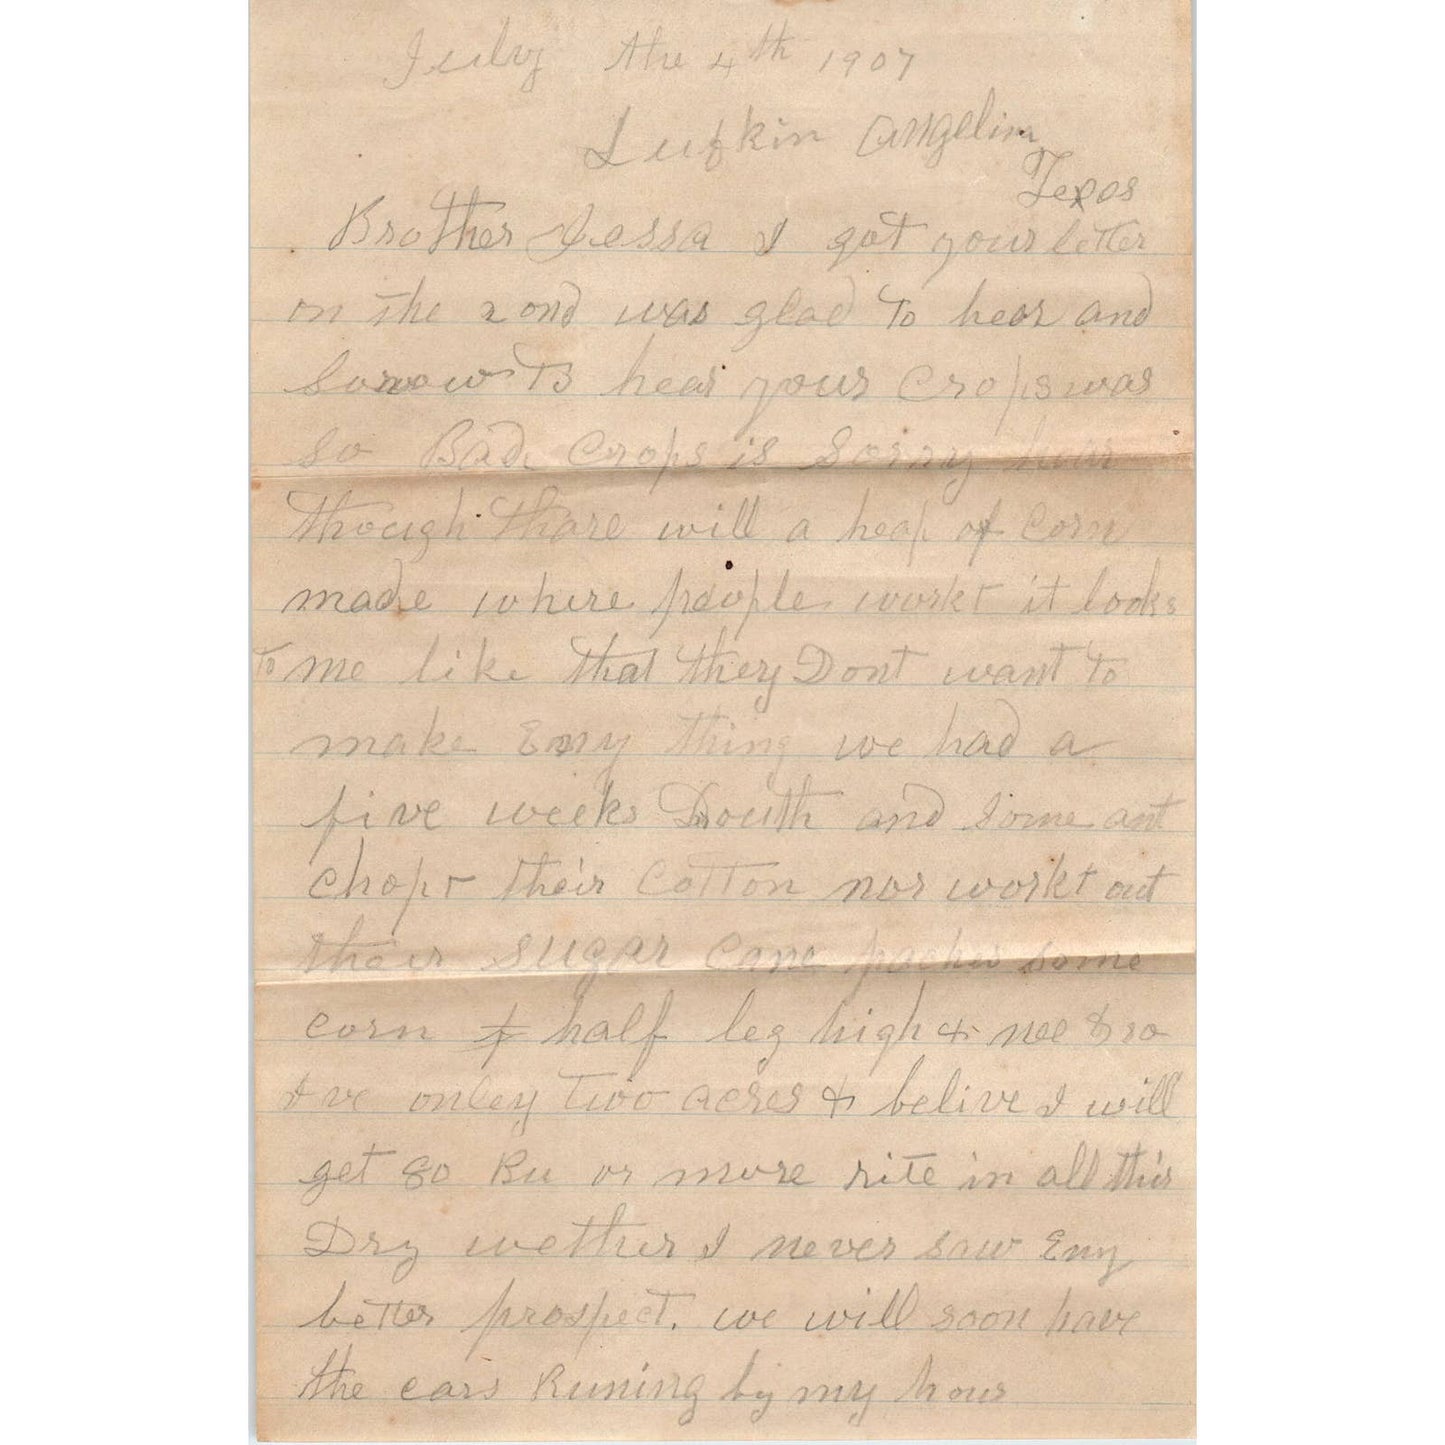 July the 4th 1907
Lufkin Angelina
Texas
Brother Jessa I got your letter
on the 2ond was glad to hear and
Sorrow to hear your Crops was
so Bad. Crops is Sorry hear
though thare will a heap of Corn
made where people workt it looks
to me like that they Dont want to
make Enny thing we had a
five weeks Drouth and Some ant
chopt their Cotton nor workt out
their sugar Cane some
corn half leg high &
I ve onley Two acres & belive I will
get 80 Bu or more rite in all this
Dry wether I never saw Eny
better prospect. we will soon have
the cars Runing by my hous